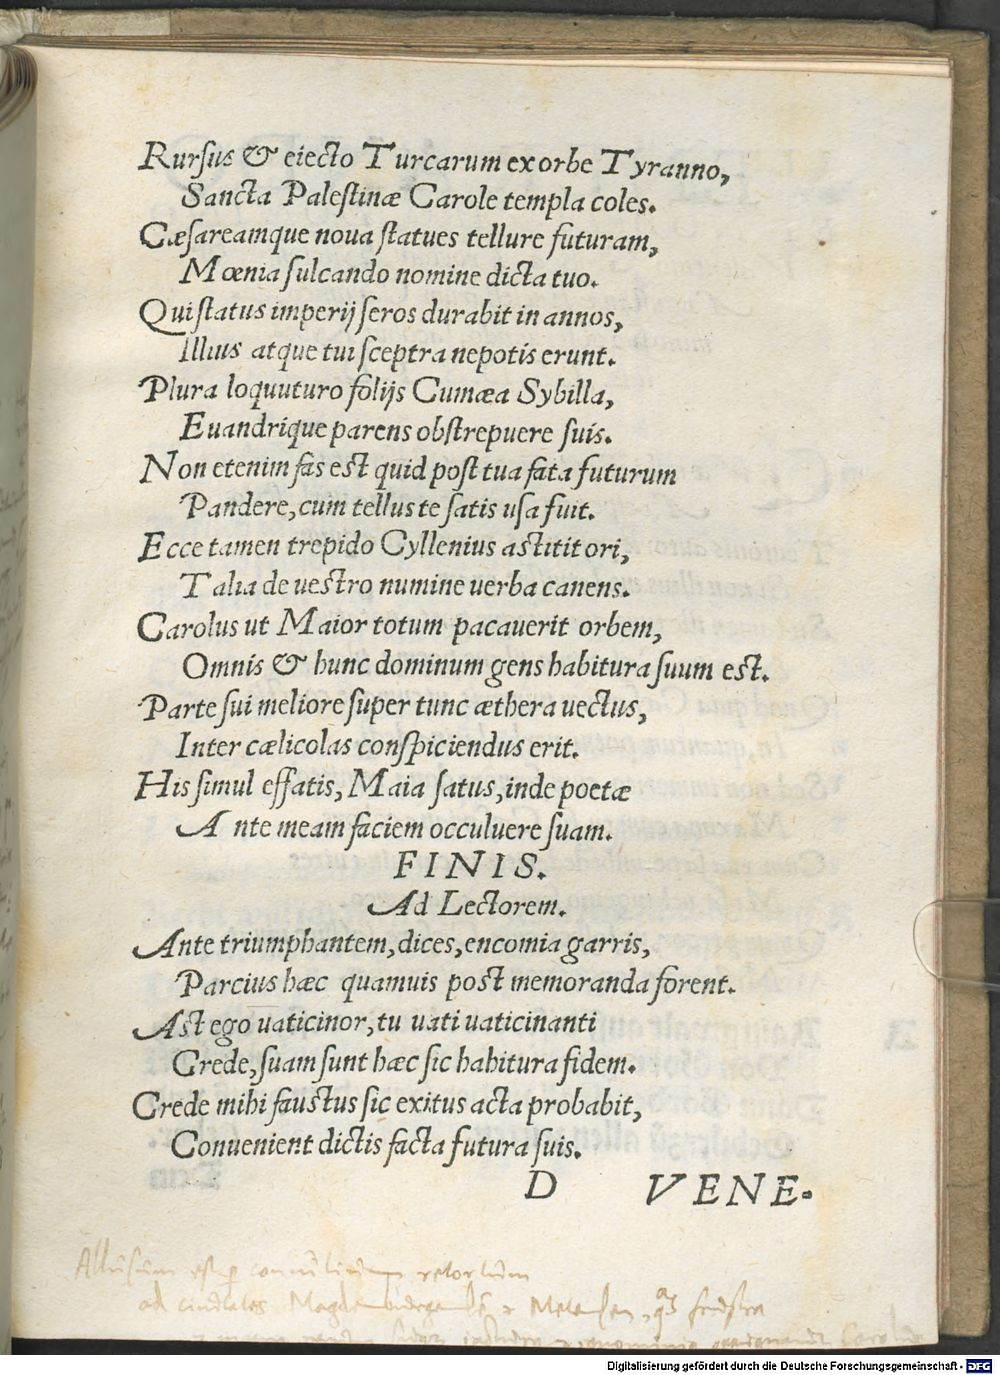 Rursus & eiecto Turcarum ex orbe Tyranno,
Sancta Palestinæ Carole templa coles.
Cæsareamque noua statues tellure futuram,
Mœnia sulcando nomine dicta tuo.
Qui status imperij seros durabit in annos,
Illius atque tui sceptra nepotis erunt.
Plura loquuturo folijs Cumæa Sybilla,
Euandrique parens obstrepuere suis.
Non etenim fas est quid post tua fata futurum
Pandere, cum tellus te satis usa fuit.
Ecce tamen trepido Cyllenius astitit ori,
Talia de uestro numine uerba canens.
Carolus ut Maior totum pacauerit orbem,
Omnis & hunc dominum gens habitura suum est.
Parte sui meliore super tunc æthera uectus,
Inter cælicolas conspiciendus erit.
His simul effatis, Maia satus, inde poetæ
Ante meam faciem occuluere suam.
FINIS.
Ad Lectorem.
Ante triumphantem, dices, encomia garris,
Parcius hæc quamuis post memoranda forent.
Ast ego uaticinor, tu uati uaticinanti
Crede, suam sunt hæc sic habitura fidem.
Crede mihi faustus sic exitus acta probabit,
Conuenient dictis facta futura suis.
D VENE-
ad ciuitates
Digitalisierung gefördert durch die Deutsche Forschungsgemeinschaft - DFG